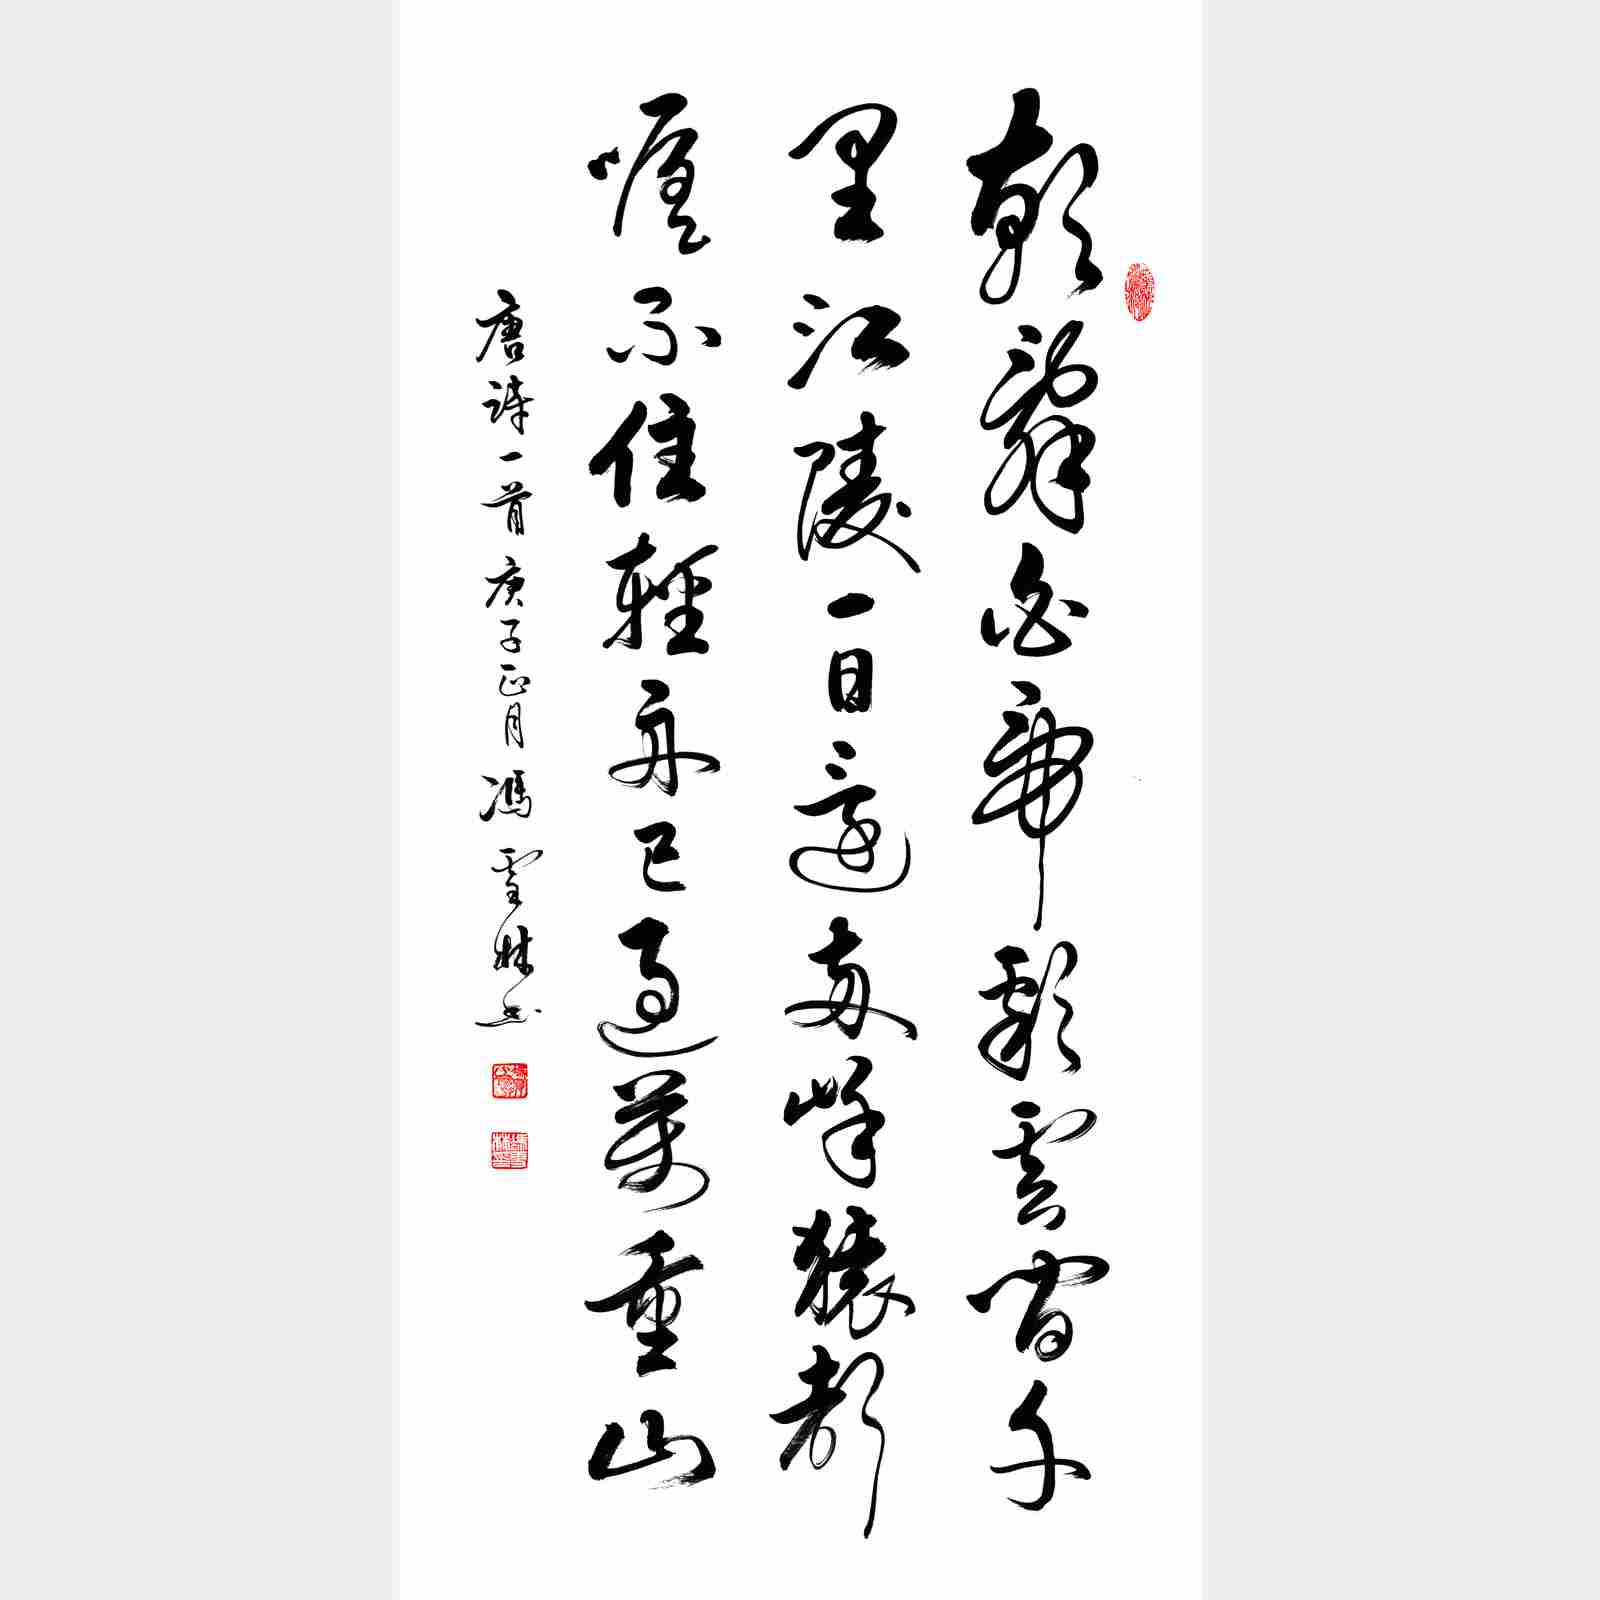 朝辭白帝彩雲間千
里江陵一日還兩岸猿聲
嗁不住輕舟已過萬重山
唐詩一首 庚子正月 馮雪林书